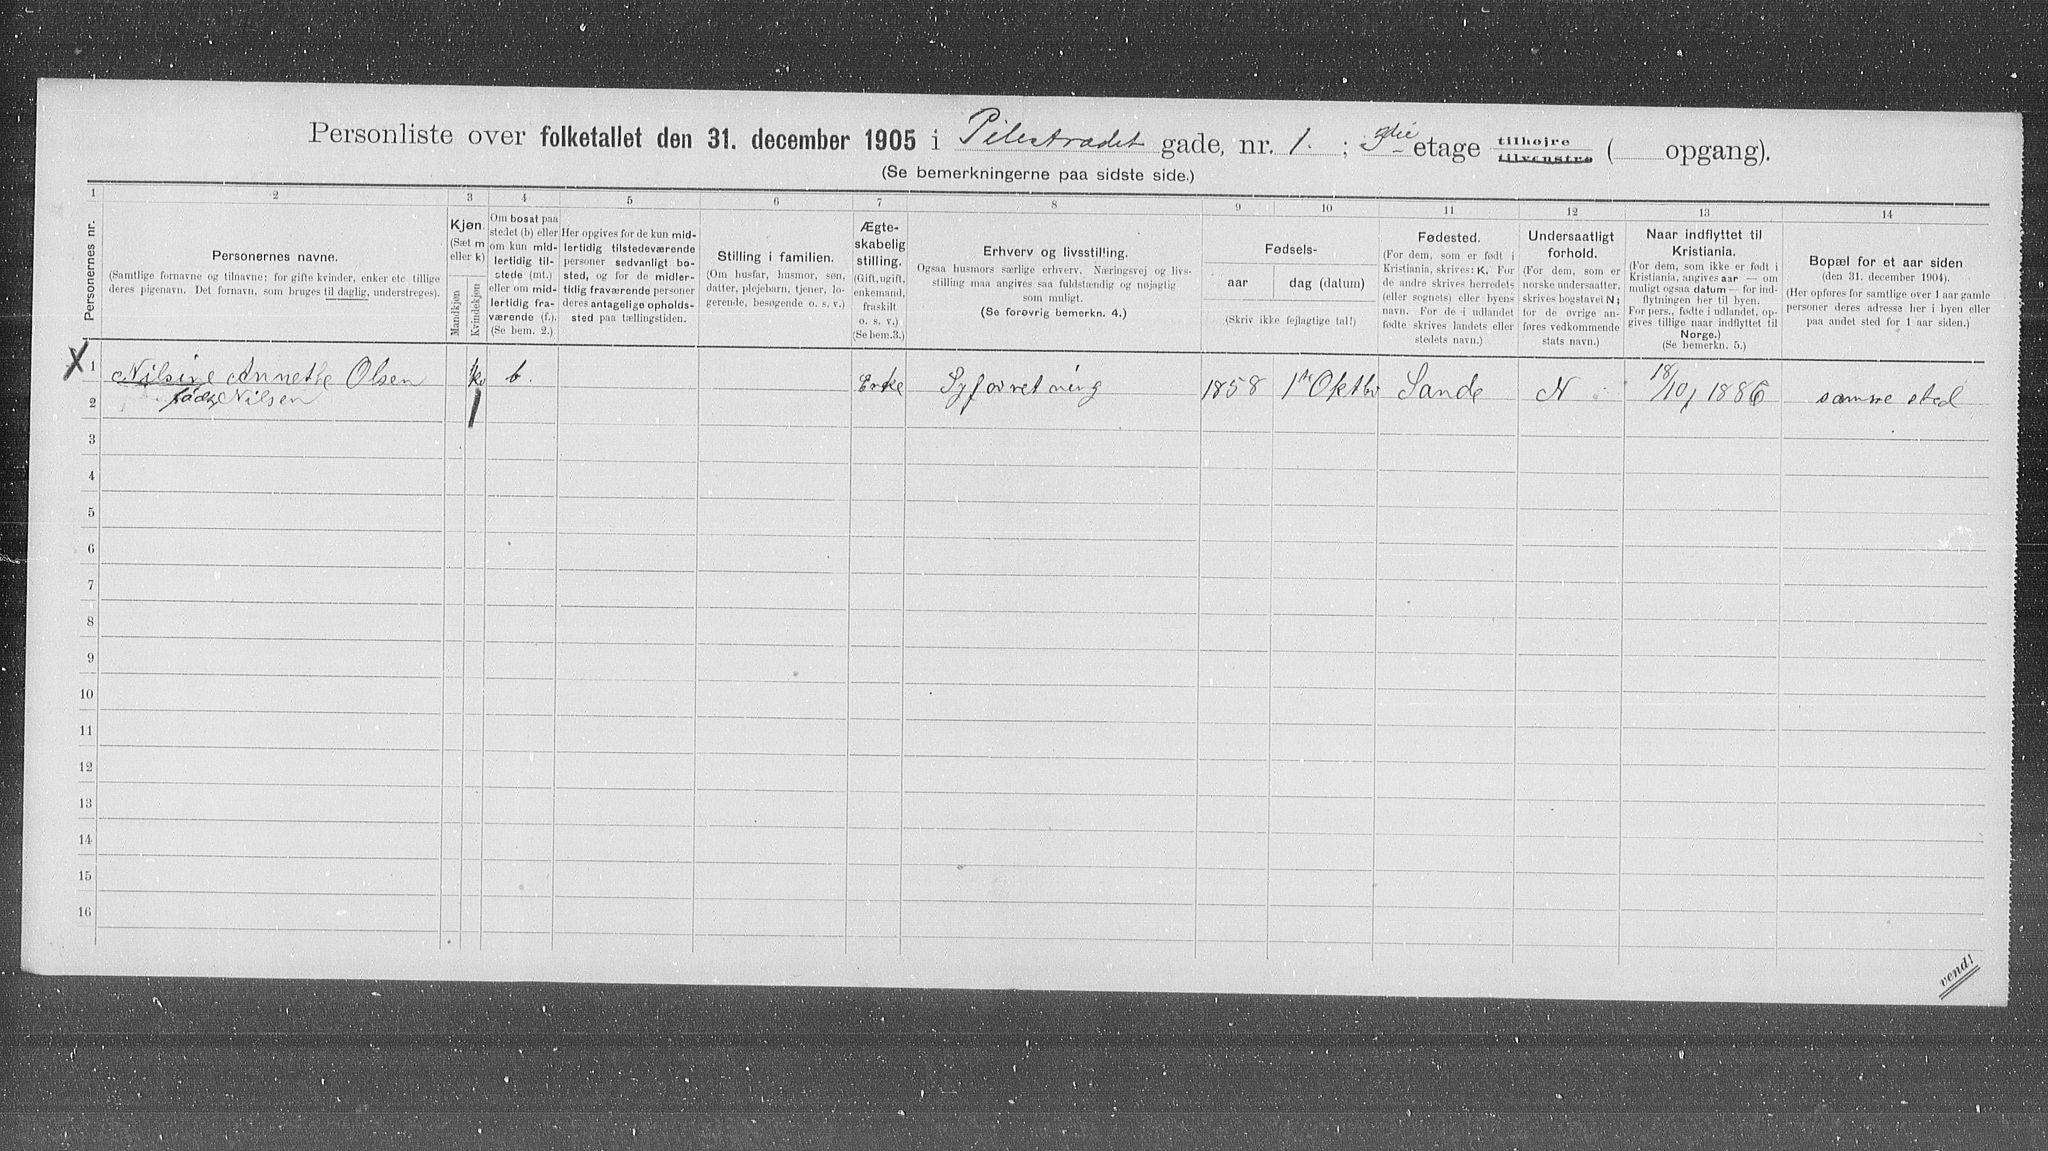 Personliste over folketallet den 31. december 1905 i Pilestrædet gade, nr. 1. ; 3die etage tilhøjre tilvenstre ( opgang).
(Se bemerkningerne paa sidste side.)
1 2 3 4 5 6 7 8 9 10 11 12 13 14
Personernes nr.
Personernes navne.
(Samtlige fornavne og tilnavne; for gifte kvinder, enker etc. tillige
deres pigenavn. Det fornavn, som bruges til daglig, understreges).
Kjøn.
(Sæt m
eller k)
Mandkjøn
Kvindekjøn
Om bosat paa
stedet (b) eller
om kun mid-
lertidig til-
stede (mt.)
eller om mid-
lertidig fra-
værende (f.).
(Se bem. 2.)
Her opgives for de kun mid-
lertidig tilstedeværende
personer sedvanligt bo-
sted, og for de midler-
tidig fraværende personer
deres antagelige opholds-
sted paa tællingstiden.
Stilling i familien.
(Om husfar, husmor, søn,
datter, plejebarn, tjener, lo-
gerende, besøgende o. s. v.)
Ægte-
skabelig
stilling.
(Gift, ugift,
enkemand,
fraskilt
o. s. v.)
(Se bem.3.)
Erhverv og livsstilling.
Ogsaa husmors særlige erhverv. Næringsvej og livs-
stilling maa angives saa fuldstændig og nøjagtig
som muligt.
(Se forøvrig bemerkn. 4.)
Fødsels-
aar
dag (datum)
(Skriv ikke fejlagtige tal!)
Fødested.
(For dem, som er født i
Kristiania, skrives: K. For
de andre skrives herredets
(eller sognets) eller byens
navn. For de i udlandet
fødte skrives landets eller
stedets navn.)
Undersaatligt
forhold.
(For dem, som er
norske undersaatter,
skrives bogstavet N;
for de øvrige an-
føres vedkommende
stats navn.)
Naar indflyttet til
Kristiania.
(For dem, som ikke er født i
Kristiania, angives aar — om
muligt ogsaa datum — for ind-
flytningen her til byen.
For pers., fødte i udlandet, op-
gives tillige naar indflyttet til
Norge.)
(Se bemerkn. 5.)
Bopæl for et aar siden
(den 31. december 1904).
(Her opføres for samtlige over 1 aar gamle
personer deres adresse her i byen eller
paa andet sted for 1 aar siden.)
X 1 Nilsine Annethe Olsen k b. Enke Syforretning 1858 1ste Oktbr Sande N 18/10 1886 samme sted
2 født Nilsen 1
3
4
5
6
7
8
9
10
11
12
13
14
15
16
vend!